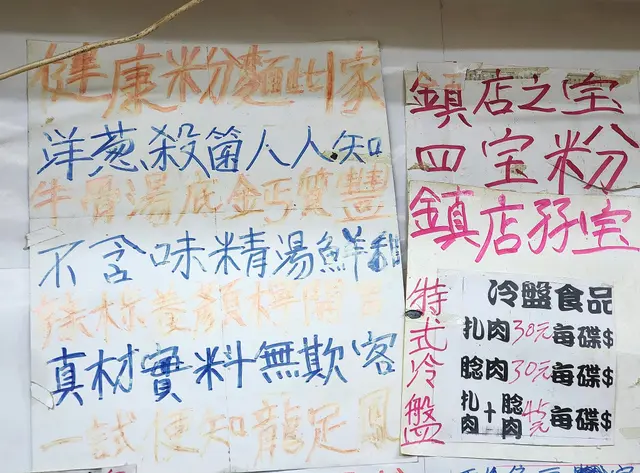 健康粉麵此家
洋葱殺菌人人知
牛骨湯底鈣質豐
不含味精湯鮮和
養顏
真材實料無欺客
一試便知龍足鳳
鎮店之宝
四宝粉
鎮店孖宝
特式冷盤
冷盤食品
扎肉30元每碟$
腍肉30元每碟$
扎肉+腍肉45元每碟$